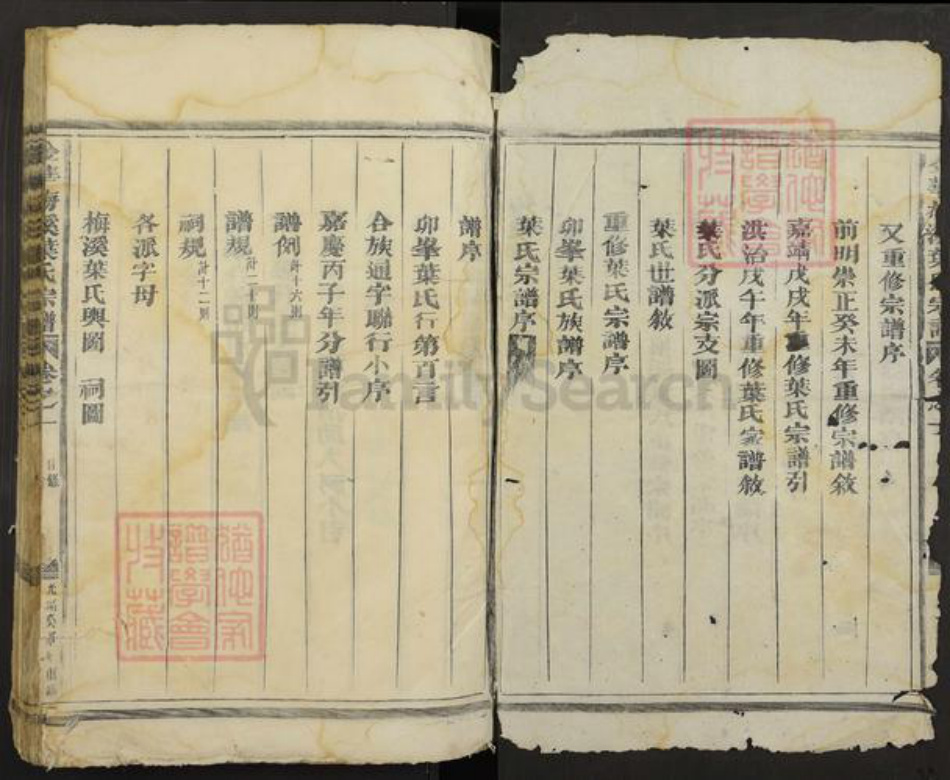 又重修宗譜序
前明崇正癸未年重修宗譜敘
嘉靖戊戌年重修葉氏宗譜引
洪治戊午年重修葉氏家譜敘
葉氏分派宗支圖
葉氏世譜敘
重修葉氏宗譜序
卯峯葉氏族譜序
葉氏宗譜序
譜序
卯峯葉氏行第百言
合族通字聯行小序
嘉慶丙子年分譜引
譜例 計十六則
譜規 計二十則
祠規 計十二則
各派字母
梅溪葉氏輿圖 祠圖
金華梅溪葉氏宗譜 卷之一 目錄
譜學會
特藏
譜學會
特藏
FamilySearch